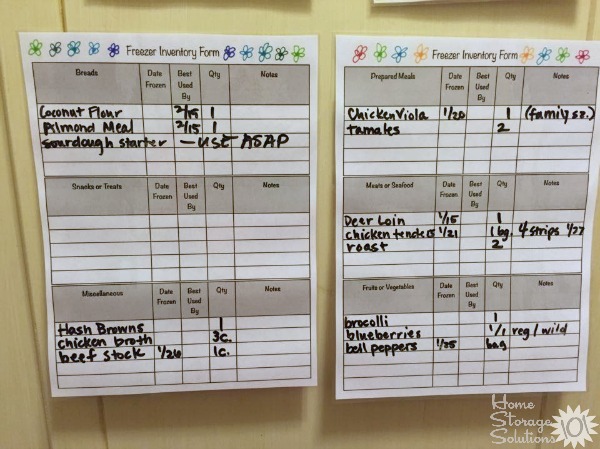 Freezer Inventory Form
Breads Date Frozen Best Used By Qty Notes
Coconut Flour 2/15 1
Almond Meal 2/15 1
sourdough starter — USE ASAP
Snacks or Treats Date Frozen Best Used By Qty Notes
Miscellaneous Date Frozen Best Used By Qty Notes
Hash Browns 1
chicken broth 3c.
beef stock 1/26 1c.
Freezer Inventory Form
Prepared Meals Date Frozen Best Used By Qty Notes
Chicken Viola 1/20 1 (family sz.)
tamales 2
Meats or Seafood Date Frozen Best Used By Qty Notes
Deer Loin 1/15 1
chicken tenders 1/21 1 bg. 4 strips 1/27
roast 2
Fruits or Vegetables Date Frozen Best Used By Qty Notes
brocolli 1
blueberries 1/1 reg / wild
bell peppers 1/25 bag
Home
Storage
Solutions
101